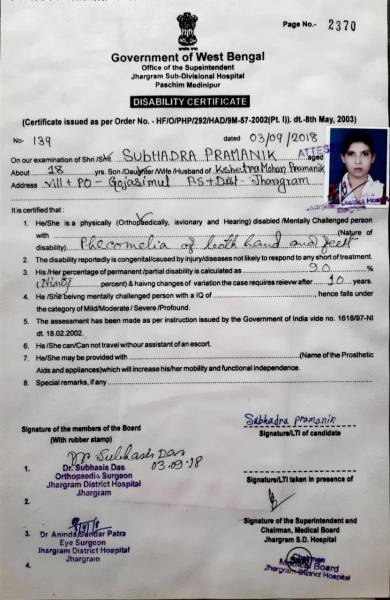 Page No.- 2370
Government of West Bengal
Office of the Superintendent
Jhargram Sub-Divisional Hospital
Paschim Medinipur
DISABILITY CERTIFICATE
(Certificate issued as per Order No. - HF/O/PHP/292/HAD/9M-57-2002(Pt. I)). dt.-8th May, 2003)
No- 139 dated 03/09/2018
ATTES
On our examination of Shri/Shri SUBHADRA PRAMANIK aged
About 18 yrs. Son/Daughter/Wife/Husband of Kshetra Mohan Pramanik
Address Vill+PO- Gajasimul PS+Dist- Jhargram
It is certified that :
1. He/She is a physically (Orthopaedically, isvionary and Hearing) disabled /Mentally Challenged person
with (Nature of
disability). Phecomelia of both hand and feet
2. The disability reportedly is congenital/caused by injury/diseases not likely to respond to any short of treatment.
3. His/Her percentage of permanent /partial disability is calculated as 90 %
(Ninty percent) & haivng changes of variation the case requires reievw after 10 years.
4. He /She beivng mentally challenged person with a IQ of , hence falls under
the category of Mild/Moderate / Severe /Profound.
5. The assessment has been made as per instruction issued by the Government of India vide no. 1618/97-NI
dt. 18.02.2002.
6. He/She can/Can not travel without assistant of an escort.
7. He/She may be provided with (Name of the Prosthetic
Aids and appliances)which will increase his/her mobility and functional independence.
8. Special remarks, if any
Signature of the members of the Board
(With rubber stamp)
Subhadra pramanik
Signature/LTI of candidate
Dr Subhasis Das
03.09.18
1. Dr. Subhasis Das
Orthopaedic Surgeon
Jhargram District Hospital
Jhargram
Signature/LTI taken in presence of
2.
3. Dr Aninda Sundar Patra
Eye Surgeon
Jhargram District Hospital
Jhargram
4.
Signature of the Superintendent and
Chairman, Medical Board
Jhargram S.D. Hospital
Chairman
Medical Board
Jhargram District Hospital